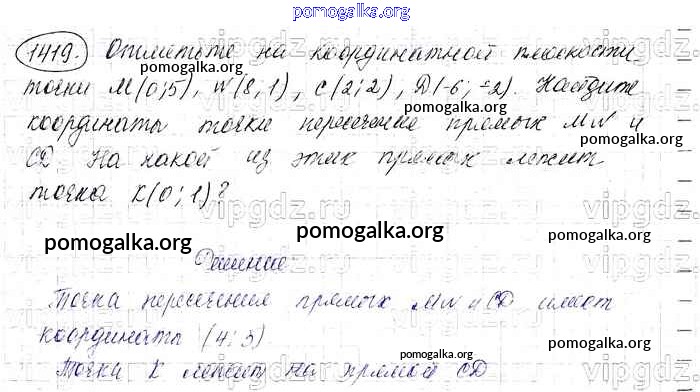 pomogalka.org
1419. Отметьте на координатной плоскости
точки M(0;5), N(8;1), C(2;2), D(-6;-2). Найдите
pomogalka.org
координаты точки пересечения прямых MN и
pomogalka.org
CD. На какой из этих прямых лежит
pomogalka.org
точка K(0;1)?
vipgdz.ru
pomogalka.org pomogalka.org
Решение
Точка пересечения прямых MN и CD имеет
координаты (4;3)
pomogalka.org
Точка K лежит на прямой CD
pomogalka.org